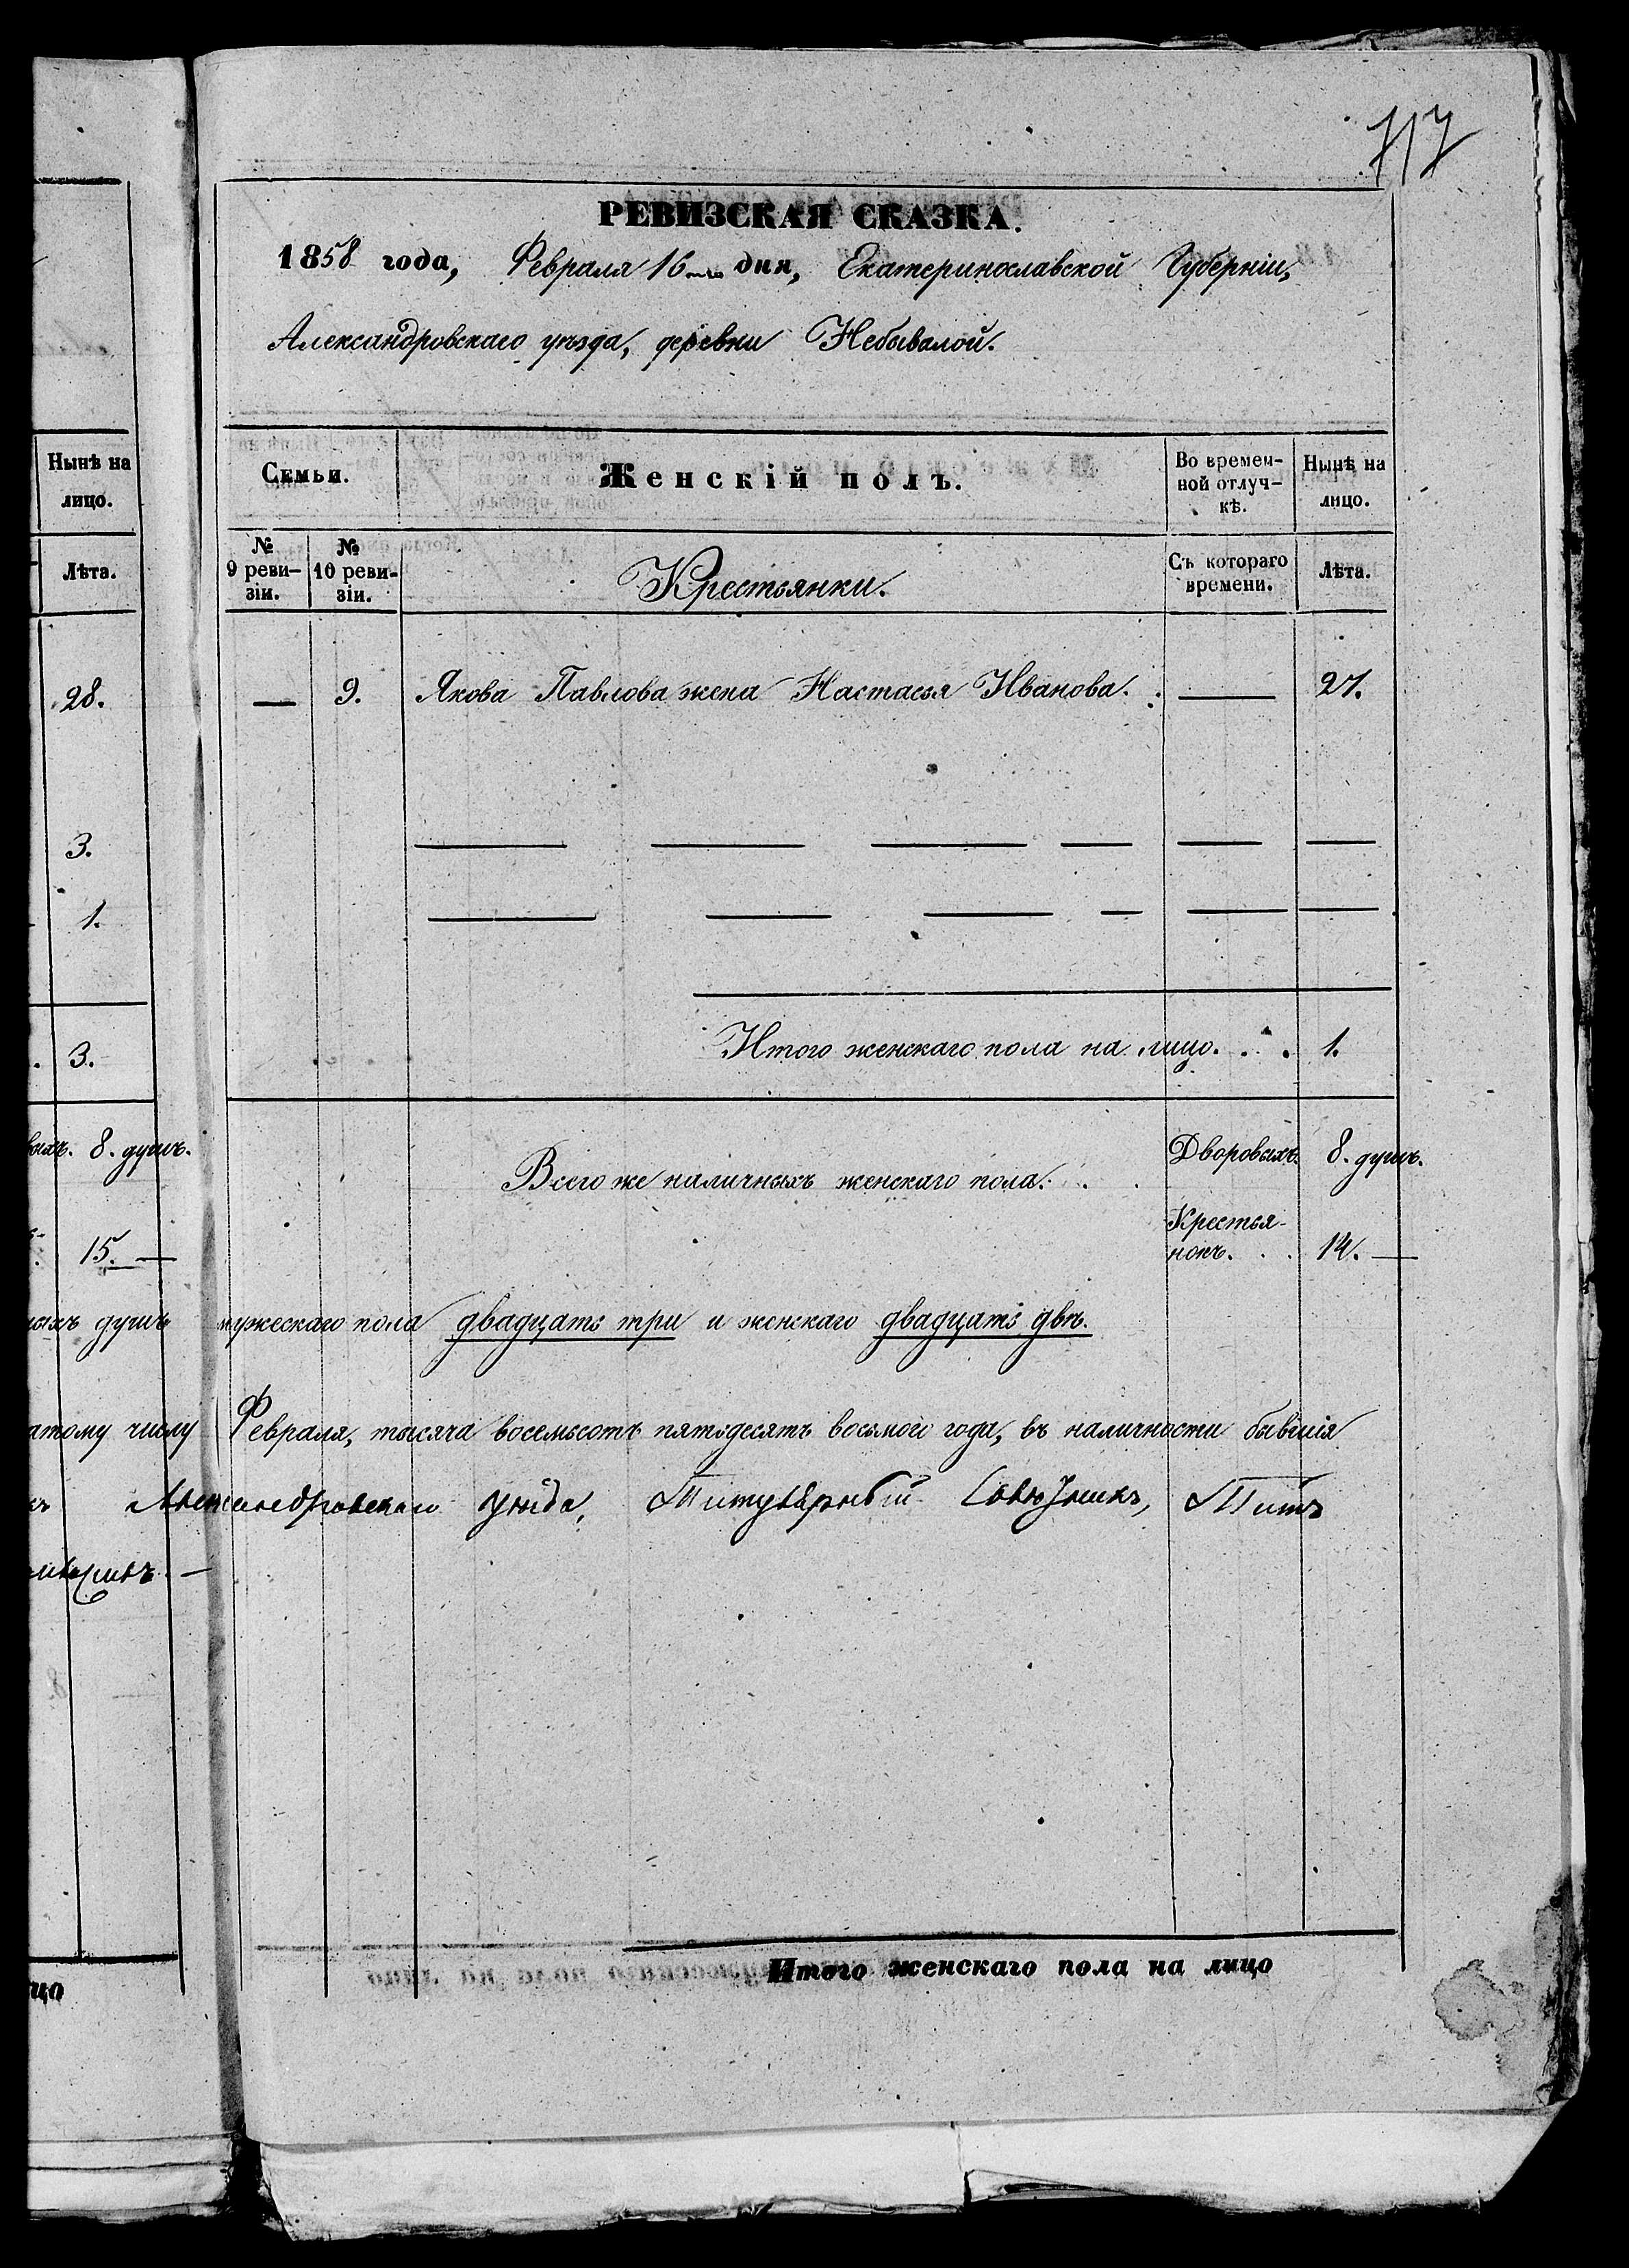 717
РЕВИЗСКАЯ СКАЗКА.
1858 года, Февраля 16го дня, Екатеринославской Губерніи,
Александровскаго уѣзда, деревни Небывалой.
Нынѣ на
лицо.
Лѣта.
28.
3.
1.
3.
8. душъ.
15. —
Семьи.
Женскій полъ.
Во времен-
ной отлуч-
кѣ.
Нынѣ на
лицо.
№
9 реви-
зіи.
№
10 реви-
зіи.
Крестьянки.
Съ котораго
времени.
Лѣта.
— 9. Якова Павлова жена Настасья Иванова. — 27.
Итого женскаго пола на лицо. . . . 1.
Всего же наличныхъ женскаго пола. . .
Дворовыхъ. 8. душъ.
Крестья-
нокъ. . . 14. —
душъ мужескаго пола двадцать три и женскаго двадцать двѣ.
числу Февраля, тысяча восемьсотъ пятьдесятъ восьмого года, въ наличности бывшія
Александровскаго уѣзда, Титулярный Совѣтникъ, Титъ
цо
Итого женскаго пола на лицо